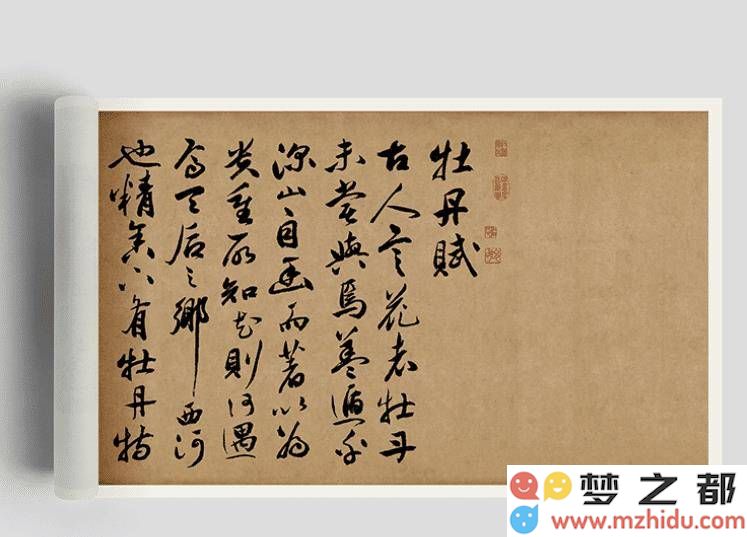 牡丹賦
古人言花者牡丹
未嘗與焉蓋遁乎
深山自幽而著以為
貴重所知花則何遇
焉天后之鄉西河
也精舍下有牡丹特
梦之都
www.mzhidu.com